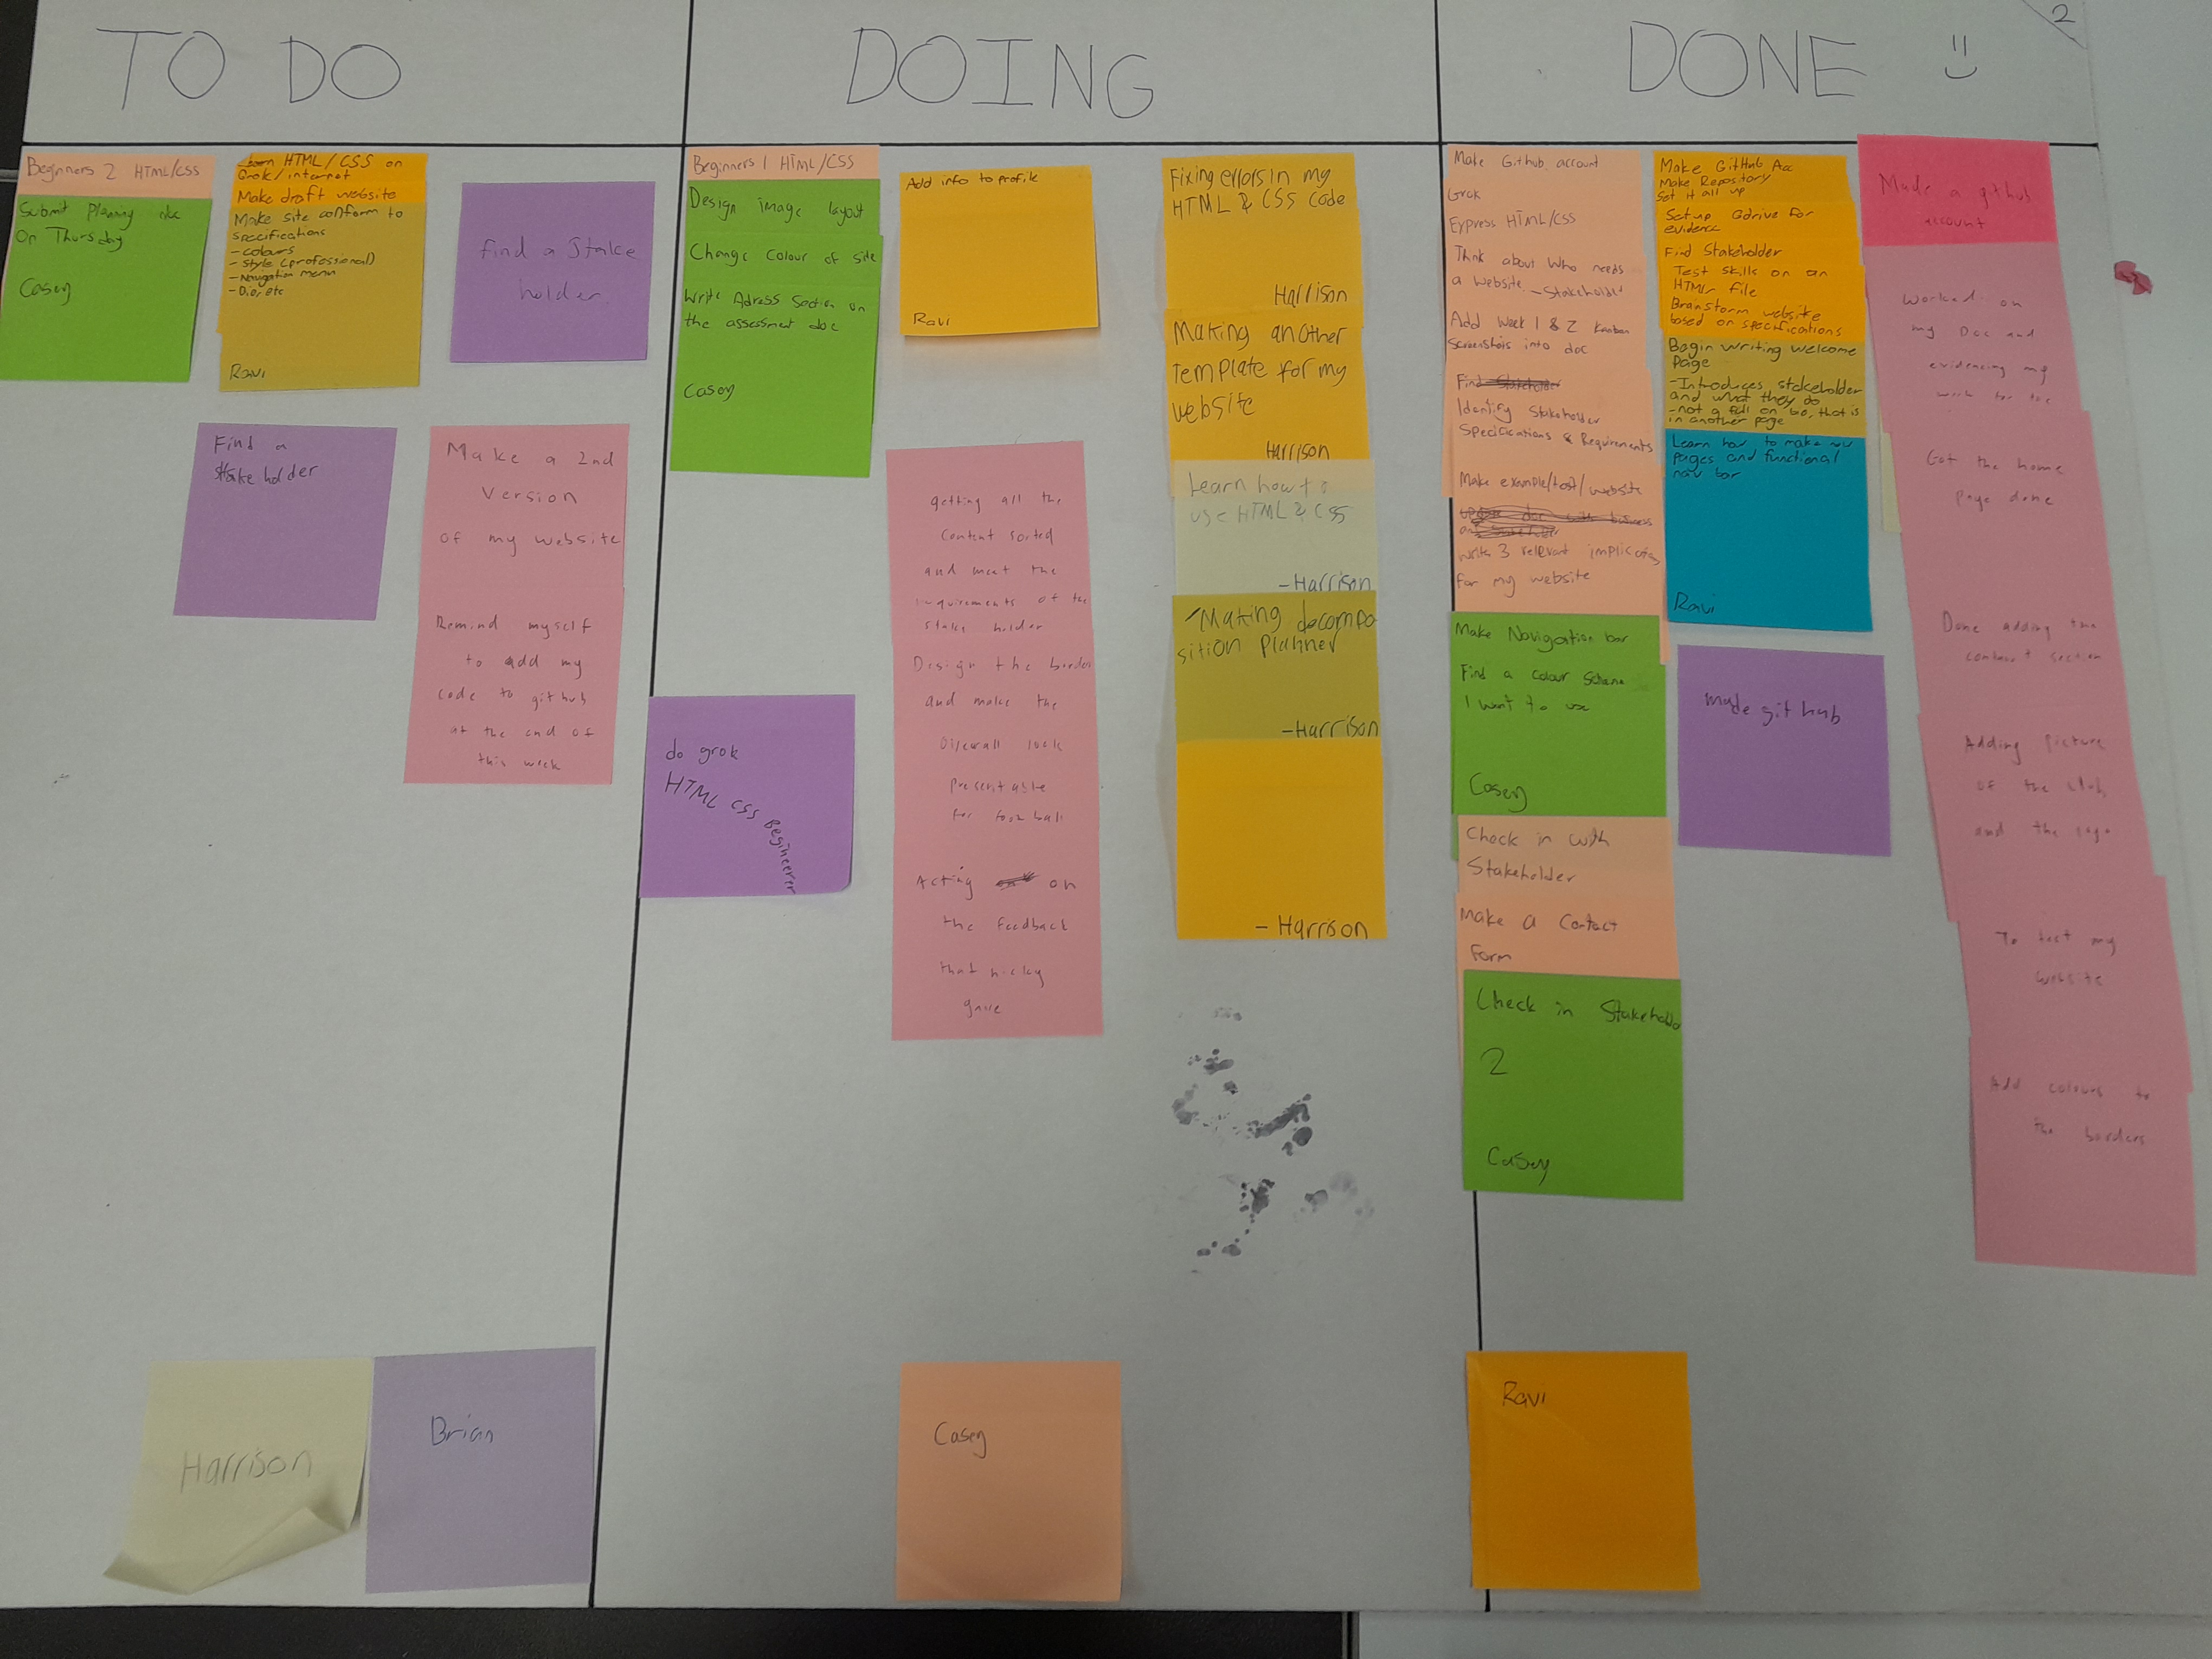 TO DO
DOING
DONE
2
Beginners 2 HTML/CSS
Submit Planning doc
On Thursday
Casey
HTML/CSS on
Grok/internet
Make draft website
Make site conform to
specifications
- colours
- style (professional)
- Navigation menu
Ravi
find a Stake
holder.
Find a
Stakeholder
Make a 2nd
Version
of my website
Remind myself
to add my
code to github
at the end of
this week
Beginners 1 HTML/CSS
Design image layout
Change Colour of site
Write Adress Section on
the assessment doc
Casey
Add info to profile
Ravi
do grok
HTML CSS Begineerer
getting all the
Content sorted
and meet the
requirements of the
stake holder
Design the border
and make the
Overall look
Presentable
for football
Acting on
the feedback
that nicky
gave
Fixing errors in my
HTML & CSS Code
Harrison
Making another
Template for my
website
Harrison
Learn how to
use HTML & CSS
- Harrison
Making decompo
sition Planner
- Harrison
- Harrison
Make Github account
Grok
Express HTML/CSS
Think about who needs
a website - Stakeholder
Add Week 1 & 2 Kanban
Screenshots into doc
Find Stakeholder
Identify Stakeholder
Specifications & Requirements
Make example/test/website
write 3 relevant implications
for my website
Make Navigation bar
Find a colour scheme
I want to use
Casey
Check in with
Stakeholder
Make a Contact
Form
Check in Stakeholder
2
Casey
Make GitHub Acc
Make Repository
Set it all up
Set up Gdrive for
evidence
Find Stakeholder
Test skills on an
HTML file
Brainstorm website
based on specifications
Begin writing welcome
page
- Introduces stakeholder
and what they do
- not a full on bio, that is
in another page
Learn how to make new
pages and functional
nav bar
Ravi
made git hub
Made a github
account
Worked on
my Doc and
evidencing my
work for the
Got the home
page done
Done adding the
contact section
Adding Picture
of the club
and the logo
To test my
website
Add colours to
the borders
Harrison
Brian
Casey
Ravi